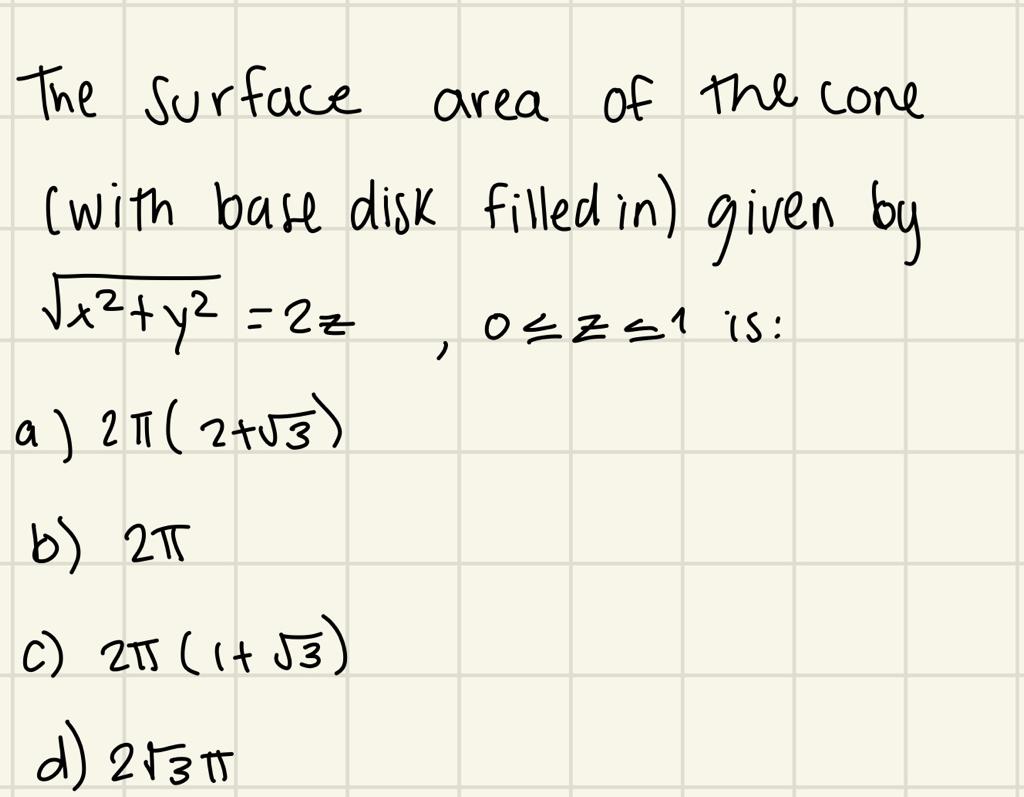 The surface area of the cone
(with base disk filled in) given by
√x²+y² = 2z , 0 ≤ z ≤ 1 is:
a) 2π( 2+√3)
b) 2π
c) 2π (1+ √3)
d) 2√3 π